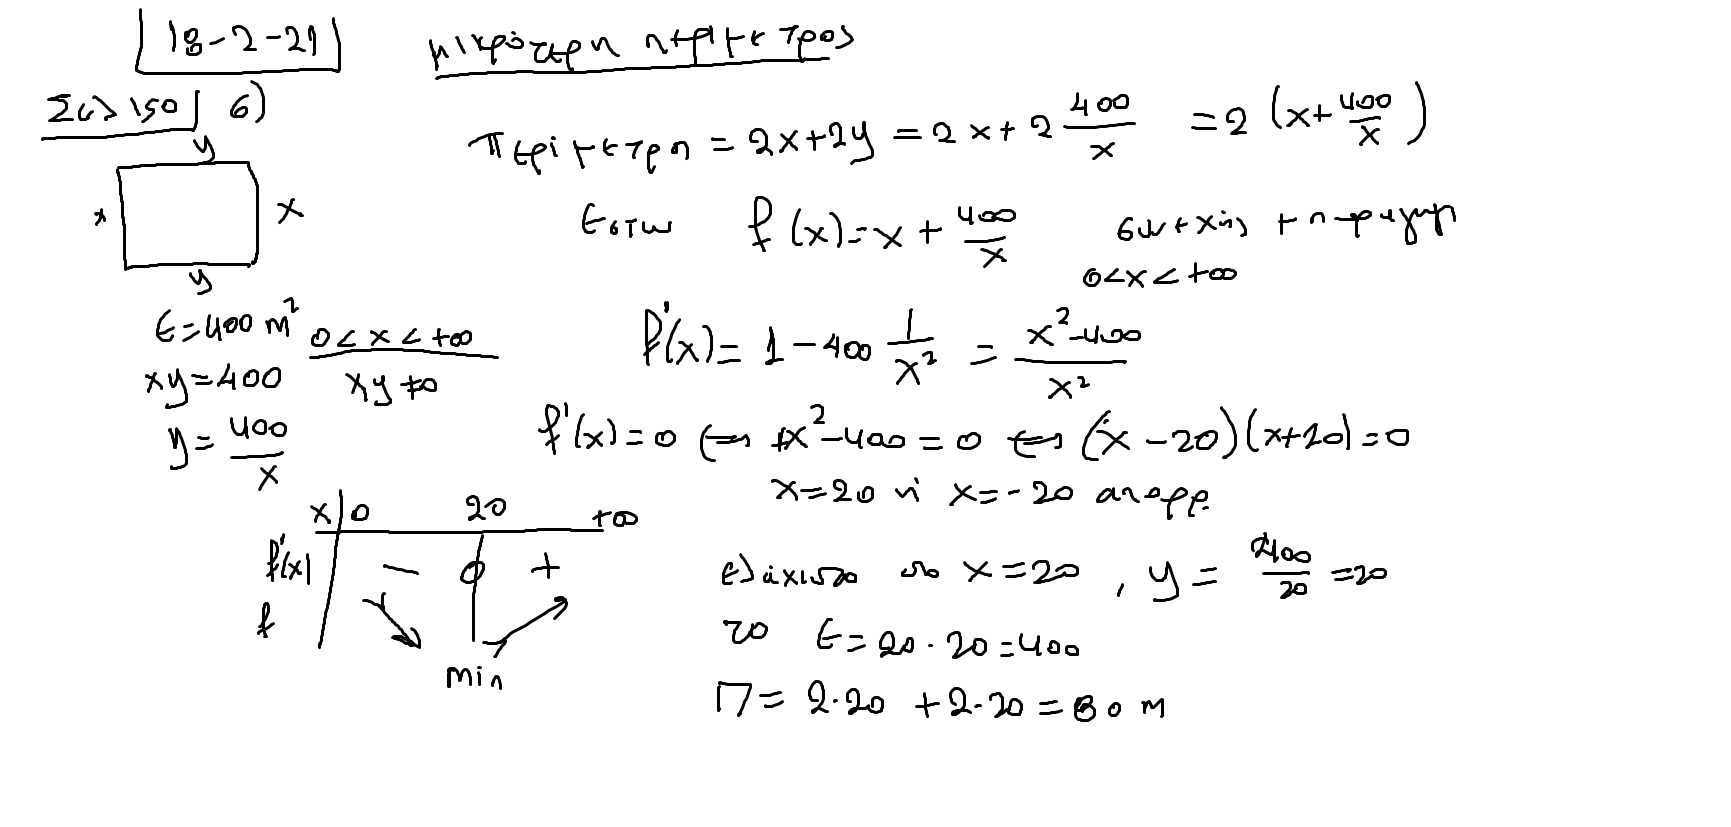 18-2-21
μικρότερη περίμετρος
Σελ 150 6)
y
x x
y
Ε=400 m²
xy=400
y= 400/x
0<x<+∞
xy≠0
Περίμετρη = 2x+2y = 2x+2 400/x = 2(x+400/x)
Εστω f(x)=x+400/x συνεχής
0<x<+∞
f'(x)= 1-400 1/x² = x²-400/x²
f'(x)=0 ⟺ x²-400=0 ⟺ (x-20)(x+20)=0
x=20 ή x=-20 απορρ.
x 0 20 +∞
f'(x) - 0 +
f ↘ ↗
min
ελάχιστο στο x=20, y= 400/20 =20
το Ε=20·20=400
Π= 2·20+2·20=80 m